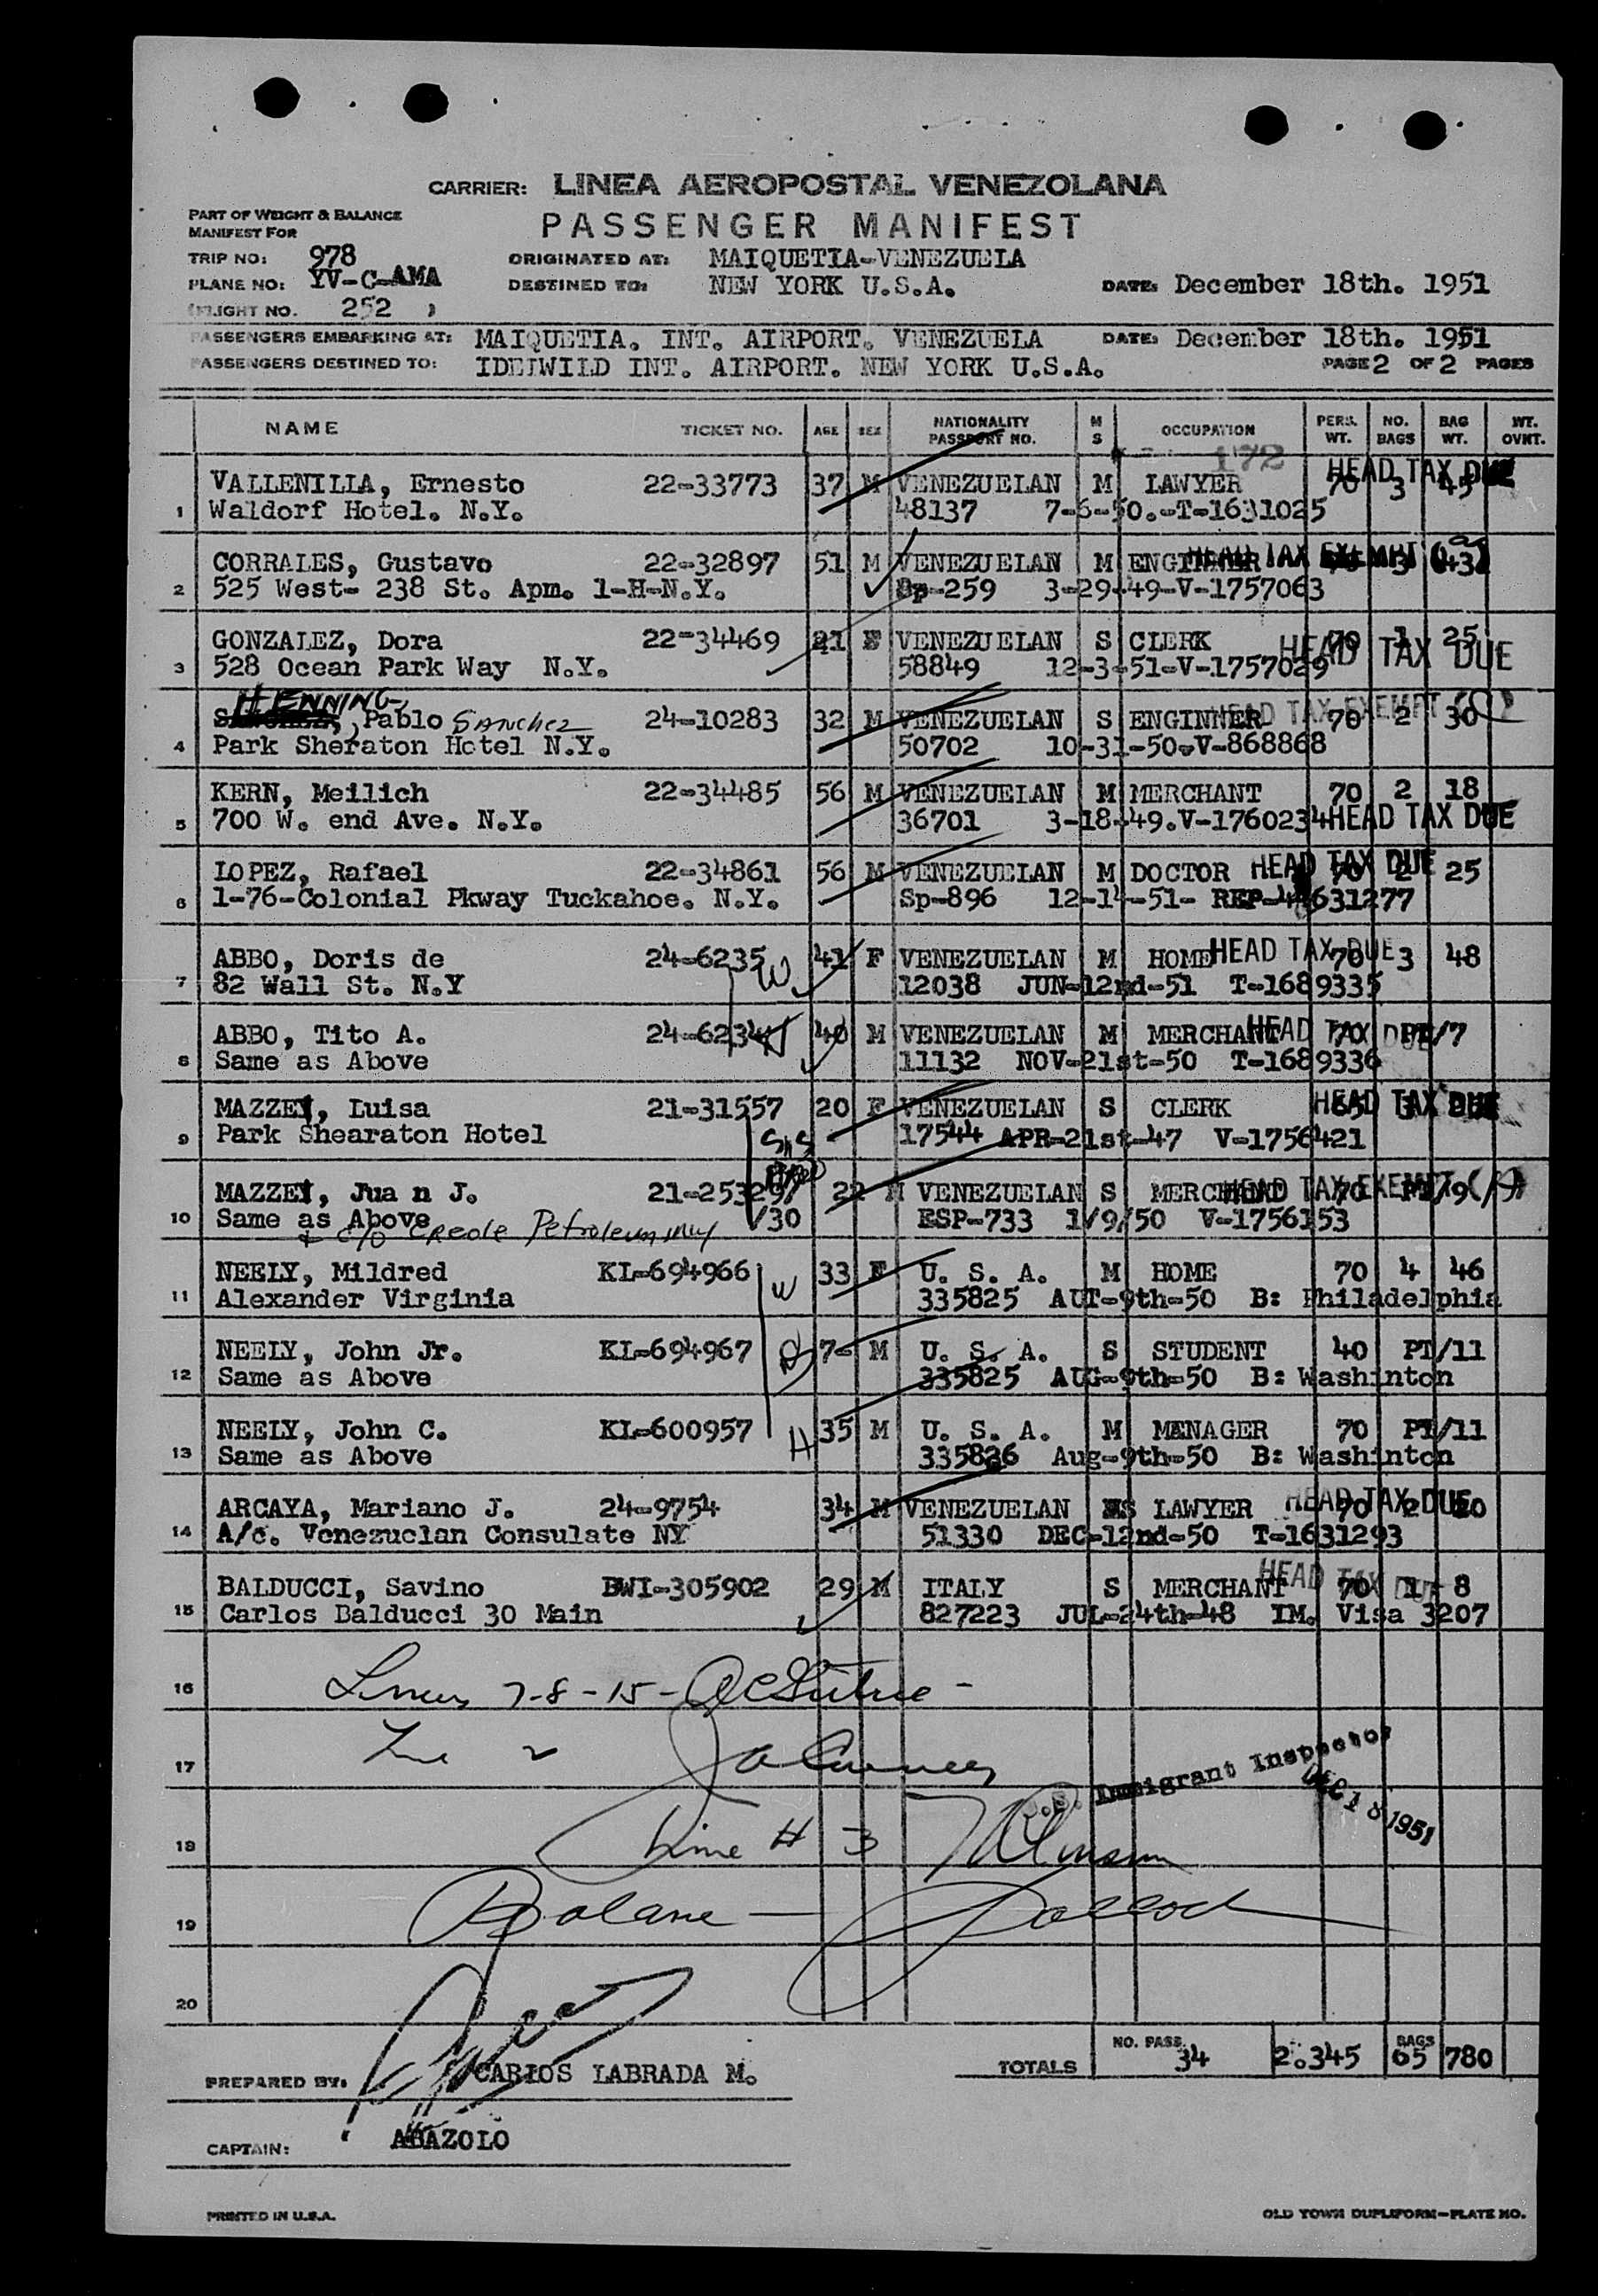 CARRIER: LINEA AEROPOSTAL VENEZOLANA
PART OF WEIGHT & BALANCE
MANIFEST FOR
PASSENGER MANIFEST
TRIP NO: 978 ORIGINATED AT: MAIQUETIA-VENEZUELA
PLANE NO: YV-C-AMA DESTINED TO: NEW YORK U.S.A. DATE: December 18th. 1951
(FLIGHT NO. 252 )
PASSENGERS EMBARKING AT: MAIQUETIA. INT. AIRPORT. VENEZUELA DATE: December 18th. 1951
PASSENGERS DESTINED TO: IDEIWILD INT. AIRPORT. NEW YORK U.S.A. PAGE 2 OF 2 PAGES
NAME TICKET NO. AGE SEX NATIONALITY PASSPORT NO. M S OCCUPATION PERS. WT. NO. BAGS BAG WT. WT. OVNT.
172
VALLENILLA, Ernesto 22-33773 37 M VENEZUELAN M LAWYER 70 3 45 HEAD TAX DUE
1 Waldorf Hotel. N.Y. 48137 7-6-50.-T-1631025
CORRALES, Gustavo 22-32897 51 M VENEZUELAN M ENGINNER HEAD TAX EXEMPT
2 525 West- 238 St. Apm. 1-H-N.Y. Sp-259 3-29-49-V-1757063
GONZALEZ, Dora 22-34469 21 F VENEZUELAN S CLERK 70 1 25 HEAD TAX DUE
3 528 Ocean Park Way N.Y. 58849 12-3-51-V-1757029
HENNING, Pablo Sanchez 24-10283 32 M VENEZUELAN S ENGINNER 70 2 30 HEAD TAX EXEMPT
4 Park Sheraton Hotel N.Y. 50702 10-31-50-V-868868
KERN, Meilich 22-34485 56 M VENEZUELAN M MERCHANT 70 2 18
5 700 W. end Ave. N.Y. 36701 3-18-49.V-1760234 HEAD TAX DUE
LOPEZ, Rafael 22-34861 56 M VENEZUELAN M DOCTOR HEAD TAX DUE 70 2 25
6 1-76-Colonial Pkway Tuckahoe. N.Y. Sp-896 12-14-51- REP-
ABBO, Doris de 24-6235 W 41 F VENEZUELAN M HOME HEAD TAX DUE 70 3 48
7 82 Wall St. N.Y 12038 JUN-12nd-51 T-1689335
ABBO, Tito A. 24-6234 40 M VENEZUELAN M MERCHANT HEAD TAX DUE 70 PT/7
8 Same as Above 11132 NOV-21st-50 T-1689336
MAZZEI, Luisa 21-31557 20 F VENEZUELAN S CLERK 65 HEAD TAX DUE
9 Park Shearaton Hotel 17544 APR-21st-47 V-1756421
MAZZEI, Jua n J. 21-25329 22 M VENEZUELAN S MERCHANT HEAD TAX EXEMPT 70 PT/9
10 Same as Above /30 ESP-733 1/9/50 V-1756153
c/o Creole Petroleum
NEELY, Mildred KL-694966 W 33 F U. S. A. M HOME 70 4 46
11 Alexander Virginia 335825 AUT-9th-50 B: Philadelphia
NEELY, John Jr. KL-694967 7- M U. S. A. S STUDENT 40 PT/11
12 Same as Above 335825 AUG-9th-50 B: Washinton
NEELY, John C. KL-600957 H 35 M U. S. A. M MANAGER 70 PT/11
13 Same as Above 335826 Aug-9th-50 B: Washinton
ARCAYA, Mariano J. 24-9754 34 M VENEZUELAN S LAWYER HEAD TAX DUE 70 2
14 A/c. Venezuelan Consulate NY 51330 DEC-12nd-50 T-1631293
BALDUCCI, Savino BWI-305902 29 M ITALY S MERCHANT HEAD TAX DUE 70 1 8
15 Carlos Balducci 30 Main 827223 JUL-24th-48 IM. Visa 3207
16 Lines 7-8-15-
17 Line 2
U.S. Immigrant Inspector
DEC 18 1951
18 Line # 3
19 Balance —
20
NO. PASS. BAGS
TOTALS 34 2.345 65 780
PREPARED BY: CARLOS LABRADA M.
CAPTAIN: ABAZOLO
PRINTED IN U.S.A. OLD TOWN DUPLIFORM-PLATE NO.